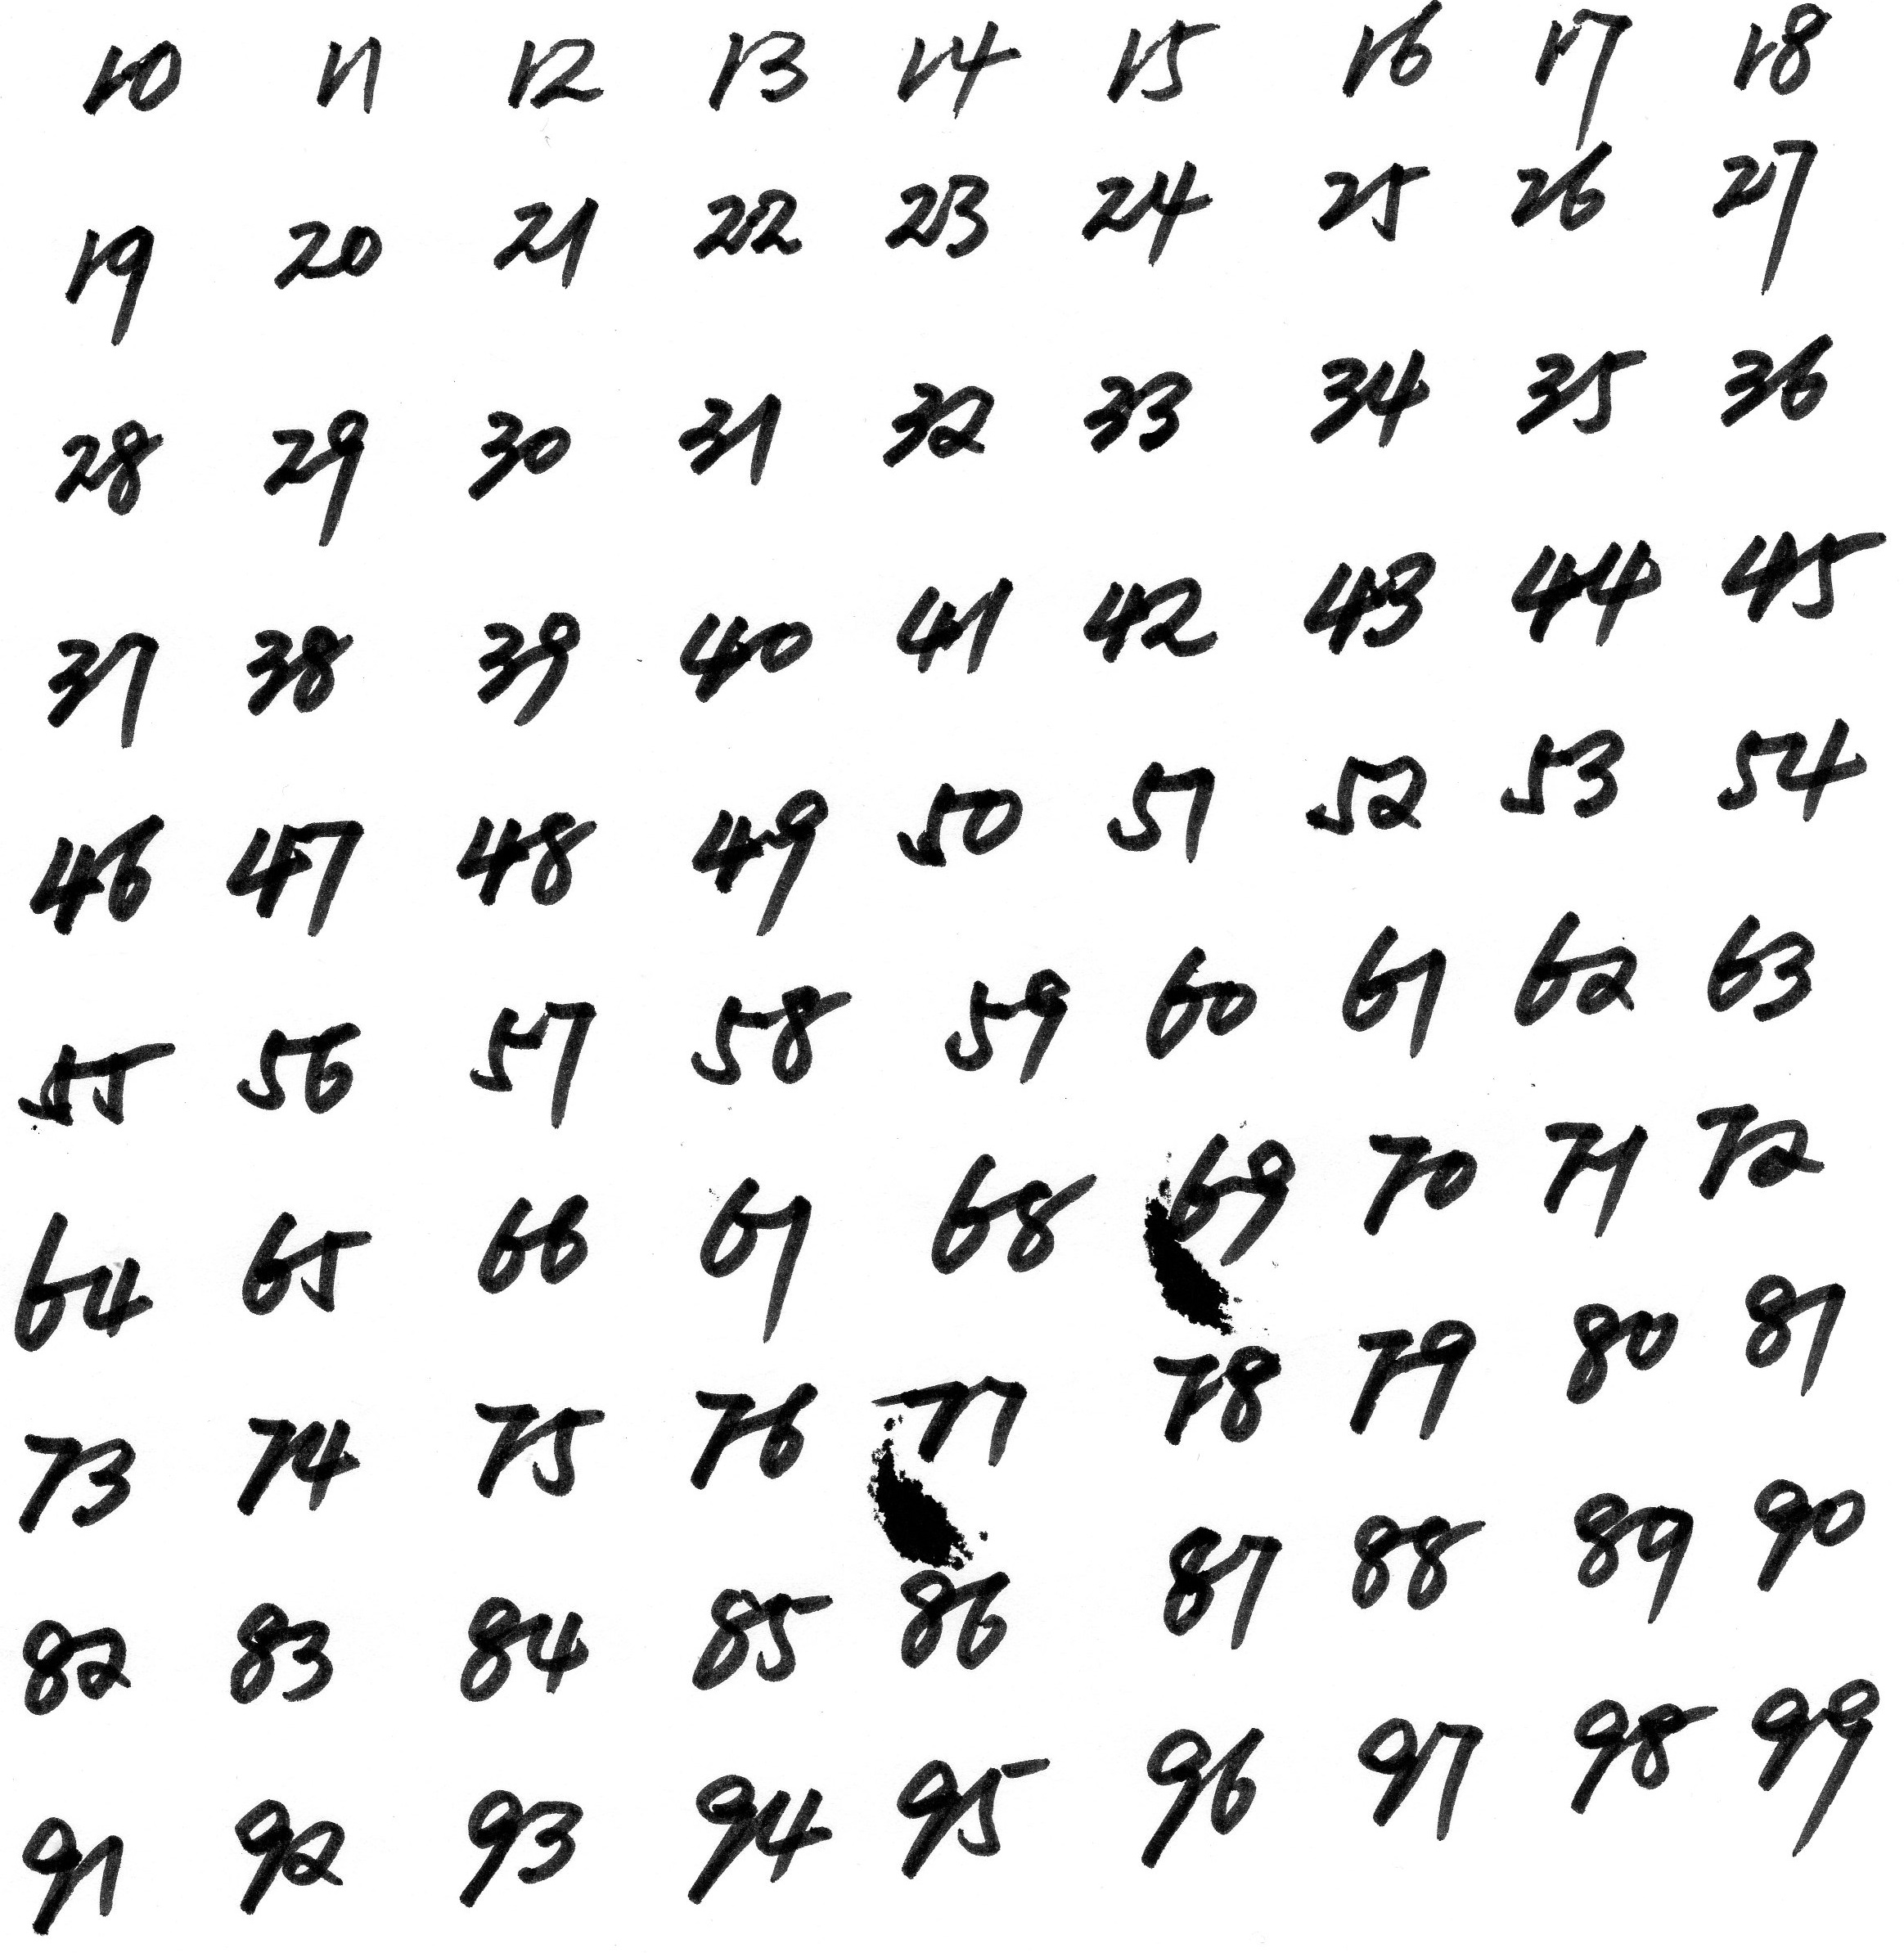 10 11 12 13 14 15 16 17 18
19 20 21 22 23 24 25 26 27
28 29 30 31 32 33 34 35 36
37 38 39 40 41 42 43 44 45
46 47 48 49 50 51 52 53 54
55 56 57 58 59 60 61 62 63
64 65 66 67 68 69 70 71 72
73 74 75 76 77 78 79 80 81
82 83 84 85 86 87 88 89 90
91 92 93 94 95 96 97 98 99